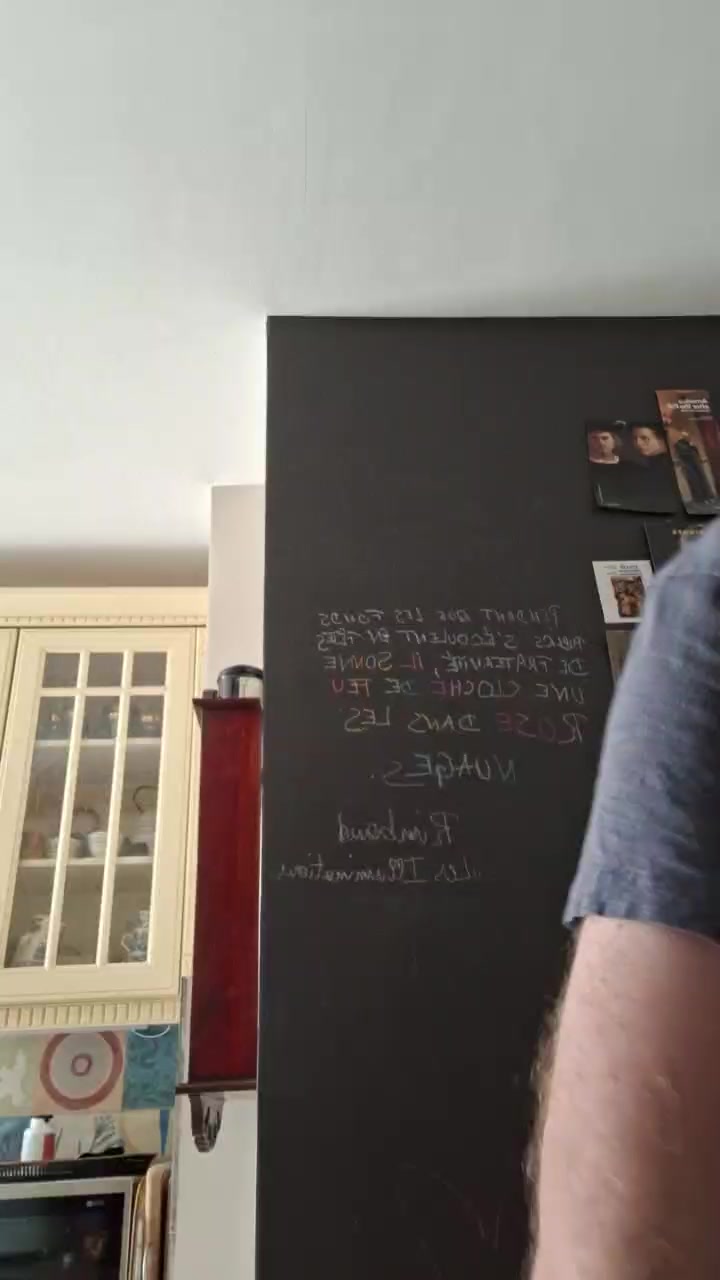 PENDANT QUE LES FONDS
PUBLICS S'ÉCOULENT EN FÊTES
DE FRATERNITÉ, IL SONNE
UNE CLOCHE DE FEU
ROSE DANS LES
NUAGES.
Rimbaud
Les Illuminations
America
after the Fall